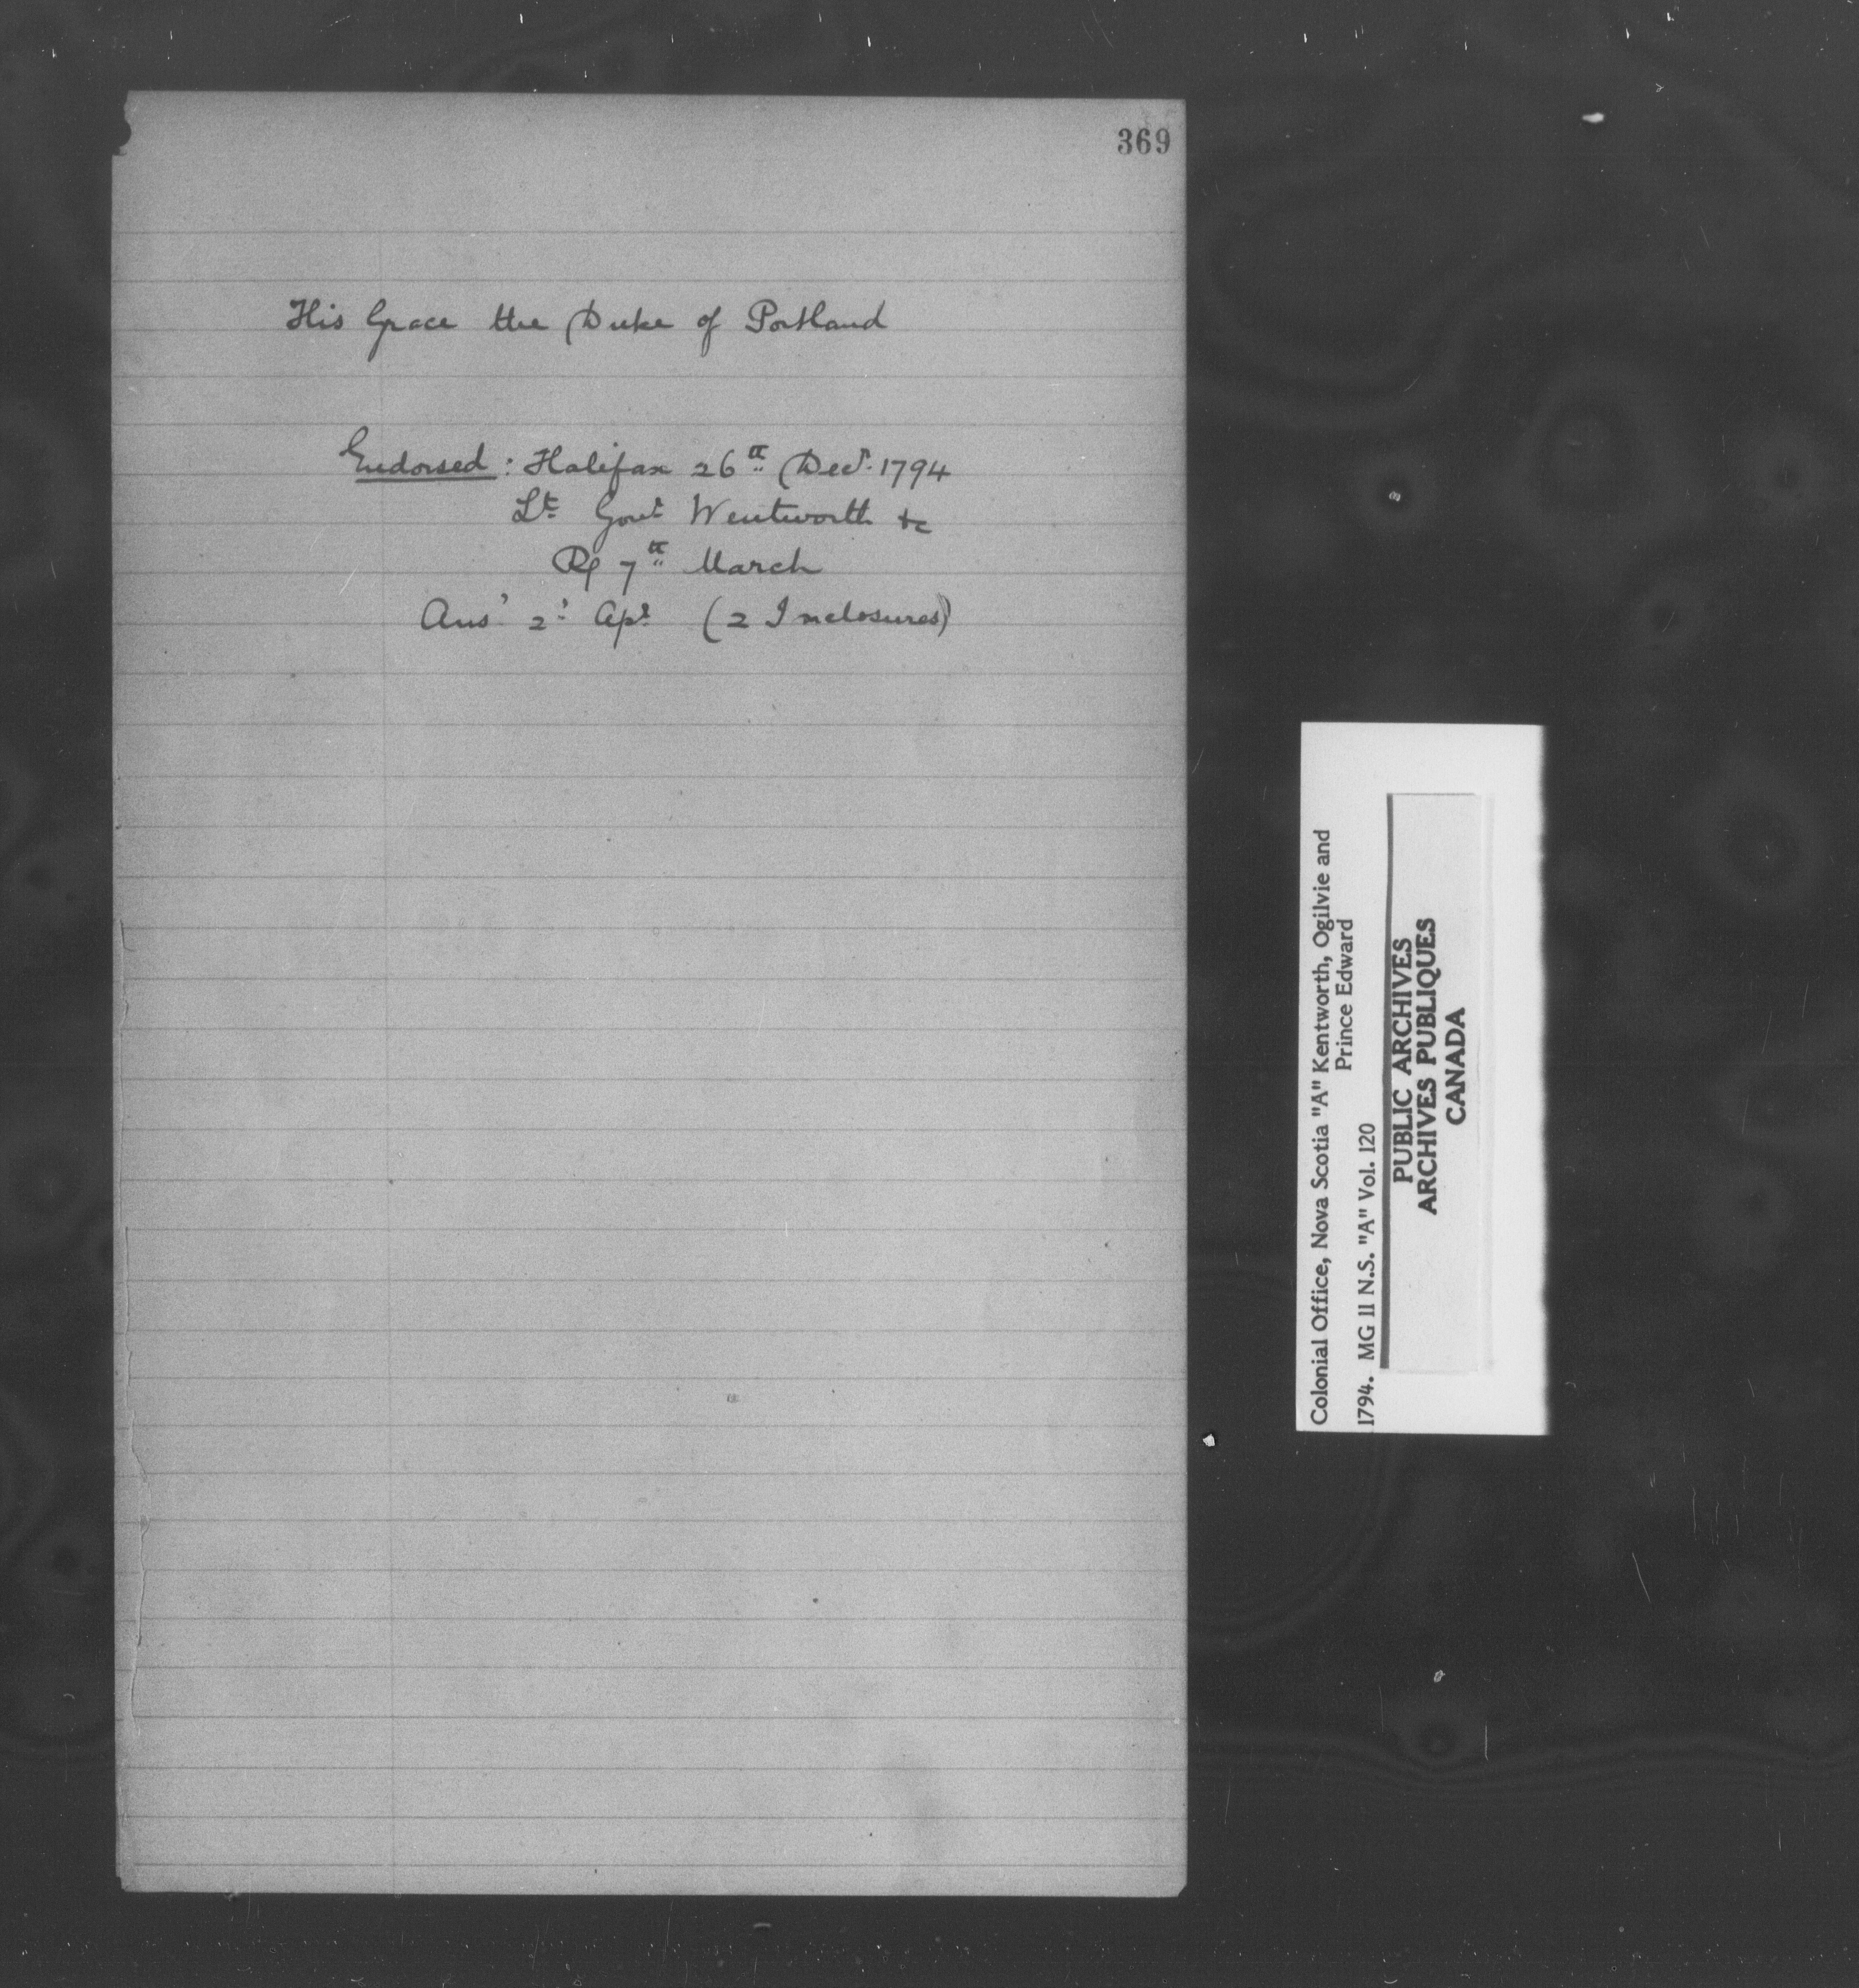 369
His Grace the Duke of Portland
Endorsed: Halifax 26th Decr. 1794
Lt. Govr. Wentworth &c
R 7th March
Ansd. 2d. Apl. (2 Inclosures)
Colonial Office, Nova Scotia "A" Kentworth, Ogilvie and
Prince Edward
1794. MG 11 N.S. "A" Vol. 120
PUBLIC ARCHIVES
ARCHIVES PUBLIQUES
CANADA